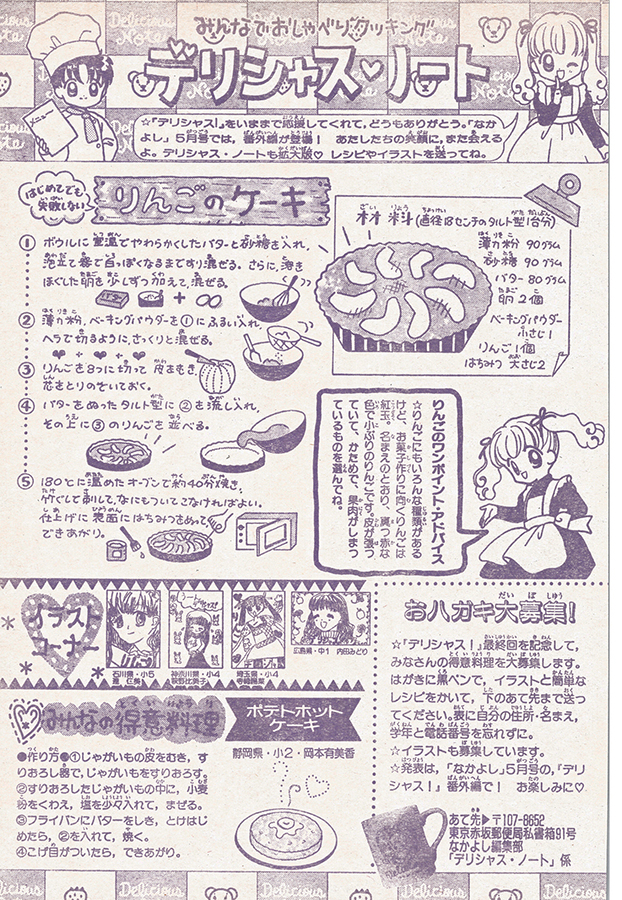 みんなでおしゃべりクッキング
デリシャス・ノート
メニュー
☆「デリシャス!」をいままで応援してくれて、どうもありがとう。「なか
よし」5月号では、番外編が登場! あたしたちの笑顔に、また会える
よ。デリシャス・ノートも拡大版♡ レシピやイラストを送ってね。
はじめてでも
失敗しない
りんごのケーキ
① ボウルに室温でやわらかくしたバターと砂糖を入れ、
泡立て器で白っぽくなるまですり混ぜる。さらに、溶き
ほぐした卵を少しずつ加えて、混ぜる。
② 薄力粉、ベーキングパウダーを①にふるい入れ、
へらで切るように、さっくりと混ぜる。
③ りんごを8つに切って皮をむき、
芯をとりのぞいておく。
④ バターをぬったタルト型に②を流し入れ、
その上に③のりんごを並べる。
⑤ 180℃に温めたオーブンで約40分焼き、
竹ぐしで刺して、なにもついてこなければよい。
仕上げに表面にはちみつをぬって、
できあがり。
材料(直径18センチのタルト型1台分)
薄力粉 90グラム
砂糖 90グラム
バター 80グラム
卵 2個
ベーキングパウダー
小さじ1
りんご 1個
はちみつ 大さじ2
りんごのワンポイント・アドバイス
☆りんごにもいろんな種類がある
けど、お菓子作りに向くりんごは
紅玉。名まえのとおり、真っ赤な
色で小ぶりのりんごです。皮が張っ
ていて、かためで、果肉がしまっ
ているものを選んでね。
イラスト
コーナー
石川県・小5
神奈川県・小4
荻野比美子
埼玉県・小4
広島県・中1 内田みどり
みんなの得意料理
ポテトホット
ケーキ
静岡県・小2・岡本有美香
●作り方●①じゃがいもの皮をむき、す
りおろし器で、じゃがいもをすりおろす。
②すりおろしたじゃがいもの中に、小麦
粉をくわえ、塩を少々入れて、まぜる。
③フライパンにバターをしき、とけはじ
めたら、②を入れて、焼く。
④こげ目がついたら、できあがり。
おハガキ大募集!
☆「デリシャス!」最終回を記念して、
みなさんの得意料理を大募集します。
はがきに黒ペンで、イラストと簡単な
レシピをかいて、下のあて先まで送っ
てください。表に自分の住所・名まえ、
学年と電話番号を忘れずに。
☆イラストも募集しています。
☆発表は、「なかよし」5月号の、「デリ
シャス!」番外編で! お楽しみに♡
あて先▶〒107-8652
東京赤坂郵便局私書箱91号
なかよし編集部
「デリシャス・ノート」係